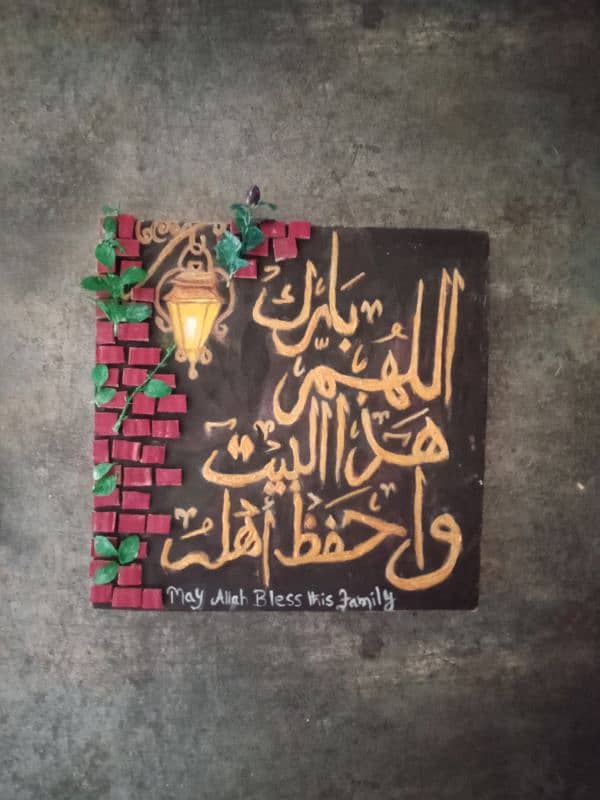 اللهم بارك
هذا البيت
واحفظ أهله
May Allah Bless this Family